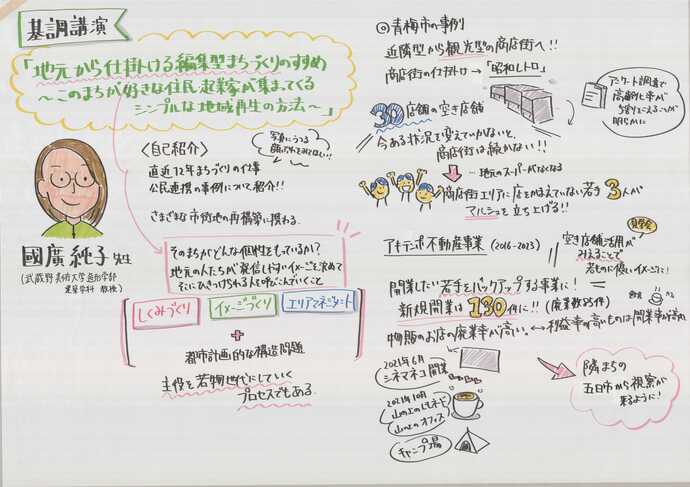 基調講演
「地元から仕掛ける編集型まちづくりのすすめ
～このまちが好きな住民起業家が集まってくる
シンプルな地域再生の方法～」
國廣純子 先生
(武蔵野美術大学造形学部
建築学科 教授)
〈自己紹介〉
直近12年まちづくりの仕事
公民連携の事例について紹介!!
さまざまな市街地の再構築に携わる
そのまちがどんな個性をもっているか?
地元の人たちが発信したいイメージを決めて
そこにひっかけられる人を呼びこんでいくこと
しくみづくり
イメージづくり
エリアマネジメント
+
都市計画的な構造問題
主役を若物世代にしていく
プロセスでもある
◎青梅市の事例
近隣型から観光型の商店街へ!!
商店街の仕掛け → 「昭和レトロ」
アンケート調査で
高齢化率が
明らかに
39店舗の空き店舗
今ある状況で変えていかないと、
商店街は続かない!!
… 地元のスーパーがなくなる
商店街エリアに店をかまえていない若手 3人が
マルシェを立ち上げる!!
アキテンポ不動産事業 (2016-2023)
見学会
空き店舗活用が
みえることで
若ものに優しいイメージに!
開業したい若手をバックアップする事業に!
新規開業は 130件に!! (廃業数35件)
飲食
物販のお店の廃業率が高い ↔ 利益率の高いものは開業率が高め
2021年6月
シネマネコ開業
2021年10月
山の上のオフィス
キャンプ場
隣まちの
五日市から視察が
来るように!